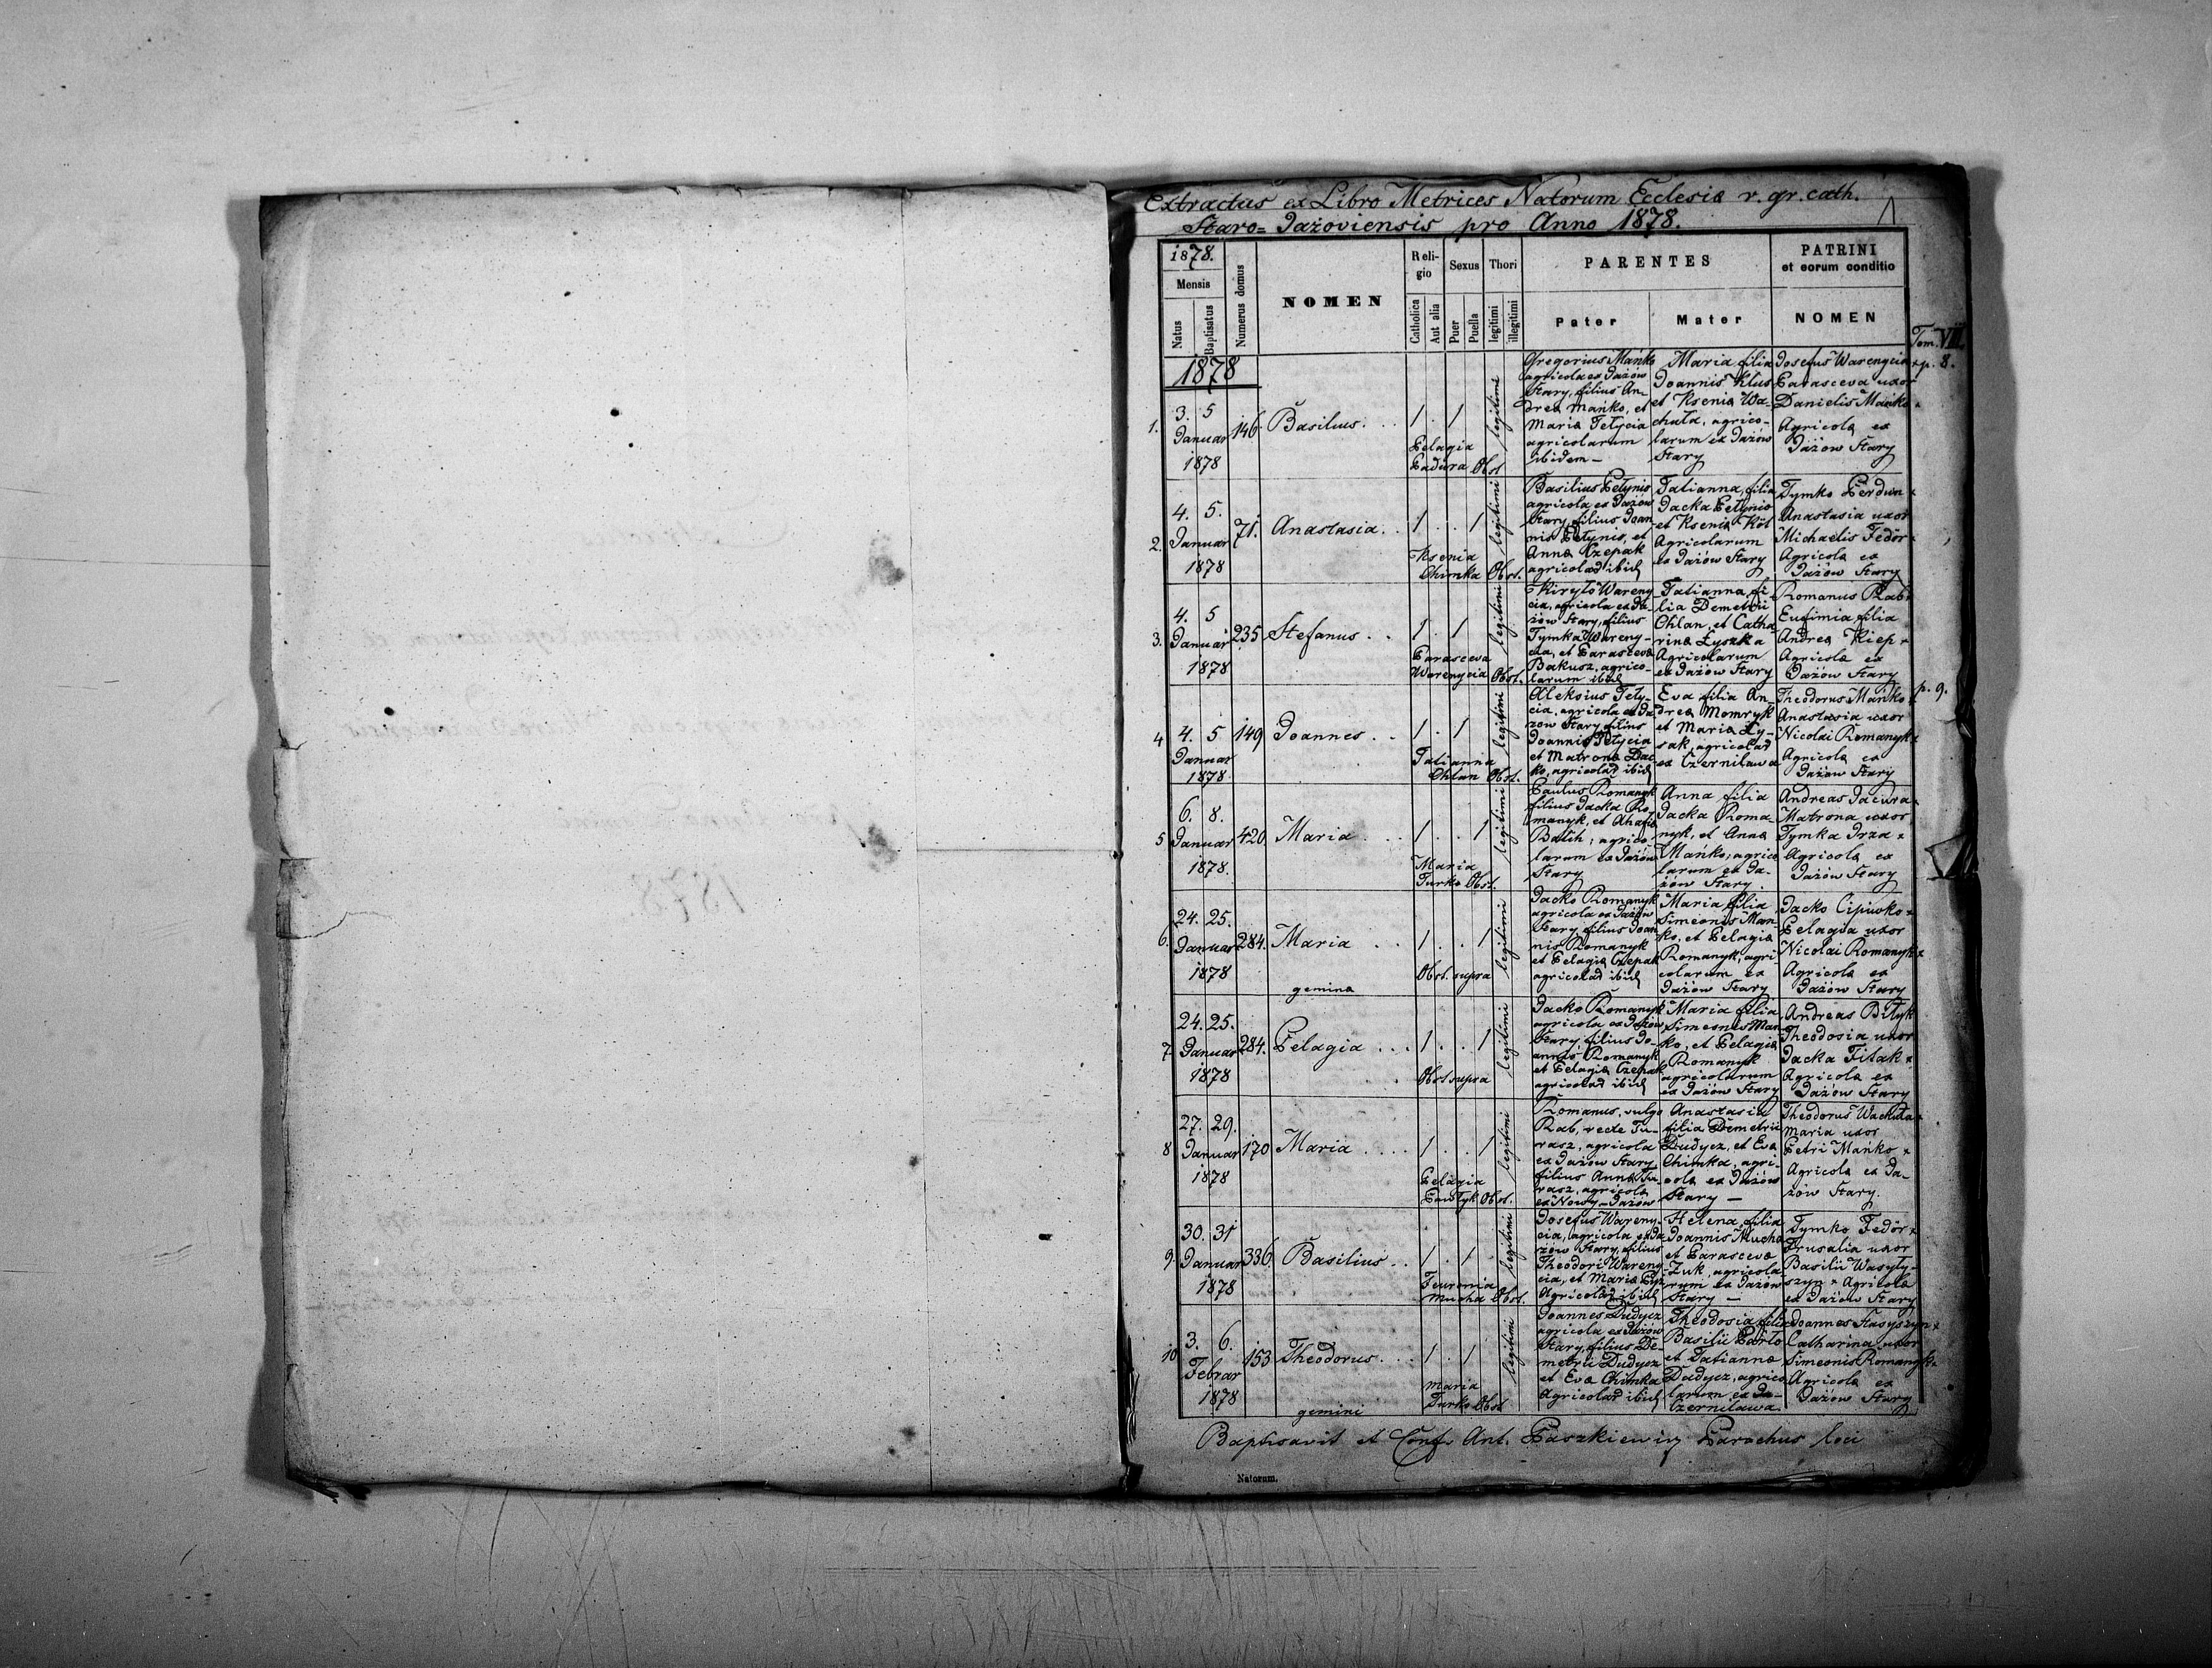 Extractus ex Libro Metrices Natorum Ecclesiæ r. gr. cath.
Staro=Jażoviensis pro Anno 1878.
1
1878.
Mensis
Natus
Baptisatus
Numerus domus
NOMEN
Religio
Catholica
Aut alia
Sexus
Puer
Puella
Thori
legitimi
illegitimi
PARENTES
Pater
Mater
PATRINI
et eorum conditio
NOMEN
Tom. VIII.
p. 8.
1878
1.
3. 5
Januar
1878
146
Basilius.
1 . 1
Pelagia
Badura Obst
legitimi
Gregorius Mańko
agricola ex Jażów
Stary, filius An-
dreæ Mańko, et
Mariæ Tetycia
agricolarum
ibidem —
Maria filia
Joannis Klus
et Ksenia Wa-
chuła, agrico-
larum ex Jażów
Stary
Josefus Warenycia
Parasceva uxor
Danielis Mańko
Agricolæ ex
Jażów Stary
2.
4. 5.
Januar
1878
71.
Anastasia.
1 . . 1
Ksenia
Chimka Obst.
legitimi
Basilius Petynio
agricola ex Jażów
Stary, filius Joan-
nis Petynio, et
Anna Czepak
agricolar ibid
Tatianna, filia
Jacka Petynio
et Ksenia Kół
Agricolarum
ex Jażów Stary
Tymko
Anastasia uxor
Michaelis Fedór
Agricolæ ex
Jażów Stary
3.
4. 5
Januar
1878
235
Stefanus.
1 . 1
Parasceva
Warenycia Obst.
legitimi
Kiryło Wareny-
cia, agricola ex Ja-
żów Stary, filius
Tymka Wareny-
cia, et Parasceva
Bakusz, agrico-
larum ibid
Tatianna, fi-
lia Demetrii
Chlan, et Catha-
rina Łyszka
Agricolarum
ex Jażów Stary
Romanus Rab
Eufimia filia
Andreæ Kiep
Agricolæ ex
Jażów Stary
p. 9.
4
4. 5
Januar
1878
149
Joannes.
1 . 1
Tatianna
Chlan Obst.
legitimi
Aleksius Tety-
cia, agricola ex Ja-
żów Stary, filius
Joannis Tetycia
et Matrona Dac-
ko, agricolar ibid
Eva filia An-
dreæ Momryk
et Maria Ły-
sak, agricolar
ex Czerniława
Theodorus Mańko
Anastasia uxor
Nicolai Romanyk
Agricolæ ex
Jażów Stary
5
6. 8.
Januar
1878.
420.
Maria.
1 . . 1
Maria
Turko Obst.
legitimi
Paulus Romanyk
filius Jacka Ro-
manyk, et Ahafia
Balch, agrico-
larum ex Jażów
Stary
Anna filia
Jacka Roma-
nyk, et Anna
Mańko, agrico-
larum ex Ja-
żów Stary.
Andreas Jacura
Matrona uxor
Tymka Drza
Agricolæ ex
Jażów Stary
6.
24. 25.
Januar
1878
284.
Maria
gemina
1 . . 1
Obst. supra
legitimi
Jacko Romanyk
agricola ex Jażów
Stary filius Joan-
nis Romanyk
et Pelagia Czepak
agricolar ibid
Maria filia
Simeonis Man-
ko, et Pelagia
Romanyk, agri-
colarum ex
Jażów Stary
Jacko Cipiwko
Pelagia uxor
Nicolai Romanyk
Agricolæ ex
Jażów Stary
7.
24. 25.
Januar
1878
284.
Pelagia
1 . . 1
Obst supra
legitimi
Jacko Romanyk
agricola ex Jażów
Stary, filius Jo-
annis Romanyk
et Pelagia Czepak
agricolar ibid
Maria filia
Simeonis Man-
ko, et Pelagia
Romanyk
agricolarum
ex Jażów Stary
Andreas Bityk
Theodosia uxor
Jacka Fitak
Agricolæ ex
Jażów Stary
8
27. 29.
Januar
1878
170
Maria
1 . . 1
Pelagia
Pawłyk Obst.
legitimi
Romanus, vulgo
Rab, recte Tu-
rasz, agricola
ex Jażów Stary
filius Anna Tu-
rasz, agricola
ex Nowy-Jażów
Anastasia
filia Demetrii
Dudycz, et Eva
Chimka, agri-
cola ex Jażów
Stary —
Theodorus Wachuła
Maria uxor
Petri Mańko
Agricolæ ex Ja-
żów Stary.
9.
30. 31
Januar
1878
336.
Basilius.
1 . 1
Feuronia
Mucha Obst.
legitimi
Josefus Wareny-
cia, agricola ex Ja-
żów Stary, filius
Theodori Wareny-
cia, et Maria
Agricolar ibid
Helena filia
Joannis Mucha
et Parasceva
Żuk, agricola-
rum ex Jażów
Stary —
Tymko Fedór
uxor
Basilii Wasyły-
szyn Agricolæ
ex Jażów Stary
10
3. 6.
Febrar
1878
153
Theodorus.
gemini
1 . 1
Maria
Turko Obst
legitimi
Joannes Dudycz
agricola ex Jażów
Stary, filius De-
metrii Dudycz
et Eva Chimka
Agricolar ibid
Theodosia filia
Basilii
et Tatianna
Dudycz, agrico-
larum ex
Czerniława
Joannes Stasyszyn
Catharina uxor
Simeonis Romanyk
Agricolæ ex
Jażów Stary
Baptisavit et Conf. Ant. Paszkiewicz Parochus loci
Natorum.